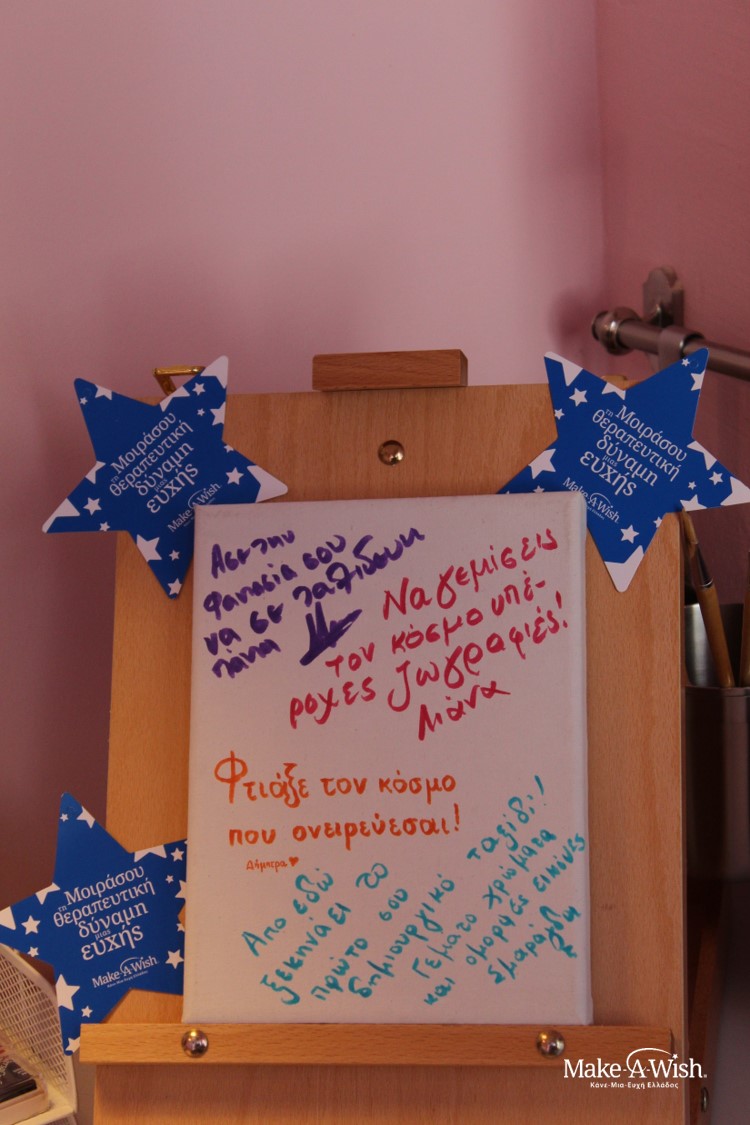 Μοιράσου
τη θεραπευτική
δύναμη
μιας
ευχής
Make-A-Wish
Μοιράσου
τη θεραπευτική
δύναμη
μιας
ευχής
Make-A-Wish
να σε
πάνια
Να γεμίσεις
τον κόσμο υπέ-
ροχες ζωγραφιές!
Λιάνα
Φτιάξε τον κόσμο
που ονειρεύεσαι!
Δήμητρα
Απο εδώ
ξεκηνάει το
πρώτο σου
δημιουργικό ταξίδι!
Γεματο χρώματα
και όμορφες εικόνες
Σμαράγδα
Μοιράσου
τη θεραπευτική
δύναμη
μιας
ευχής
Make-A-Wish
Κάνε-Μια-Ευχή Ελλάδος
Make-A-Wish®
Κάνε-Μια-Ευχή Ελλάδος